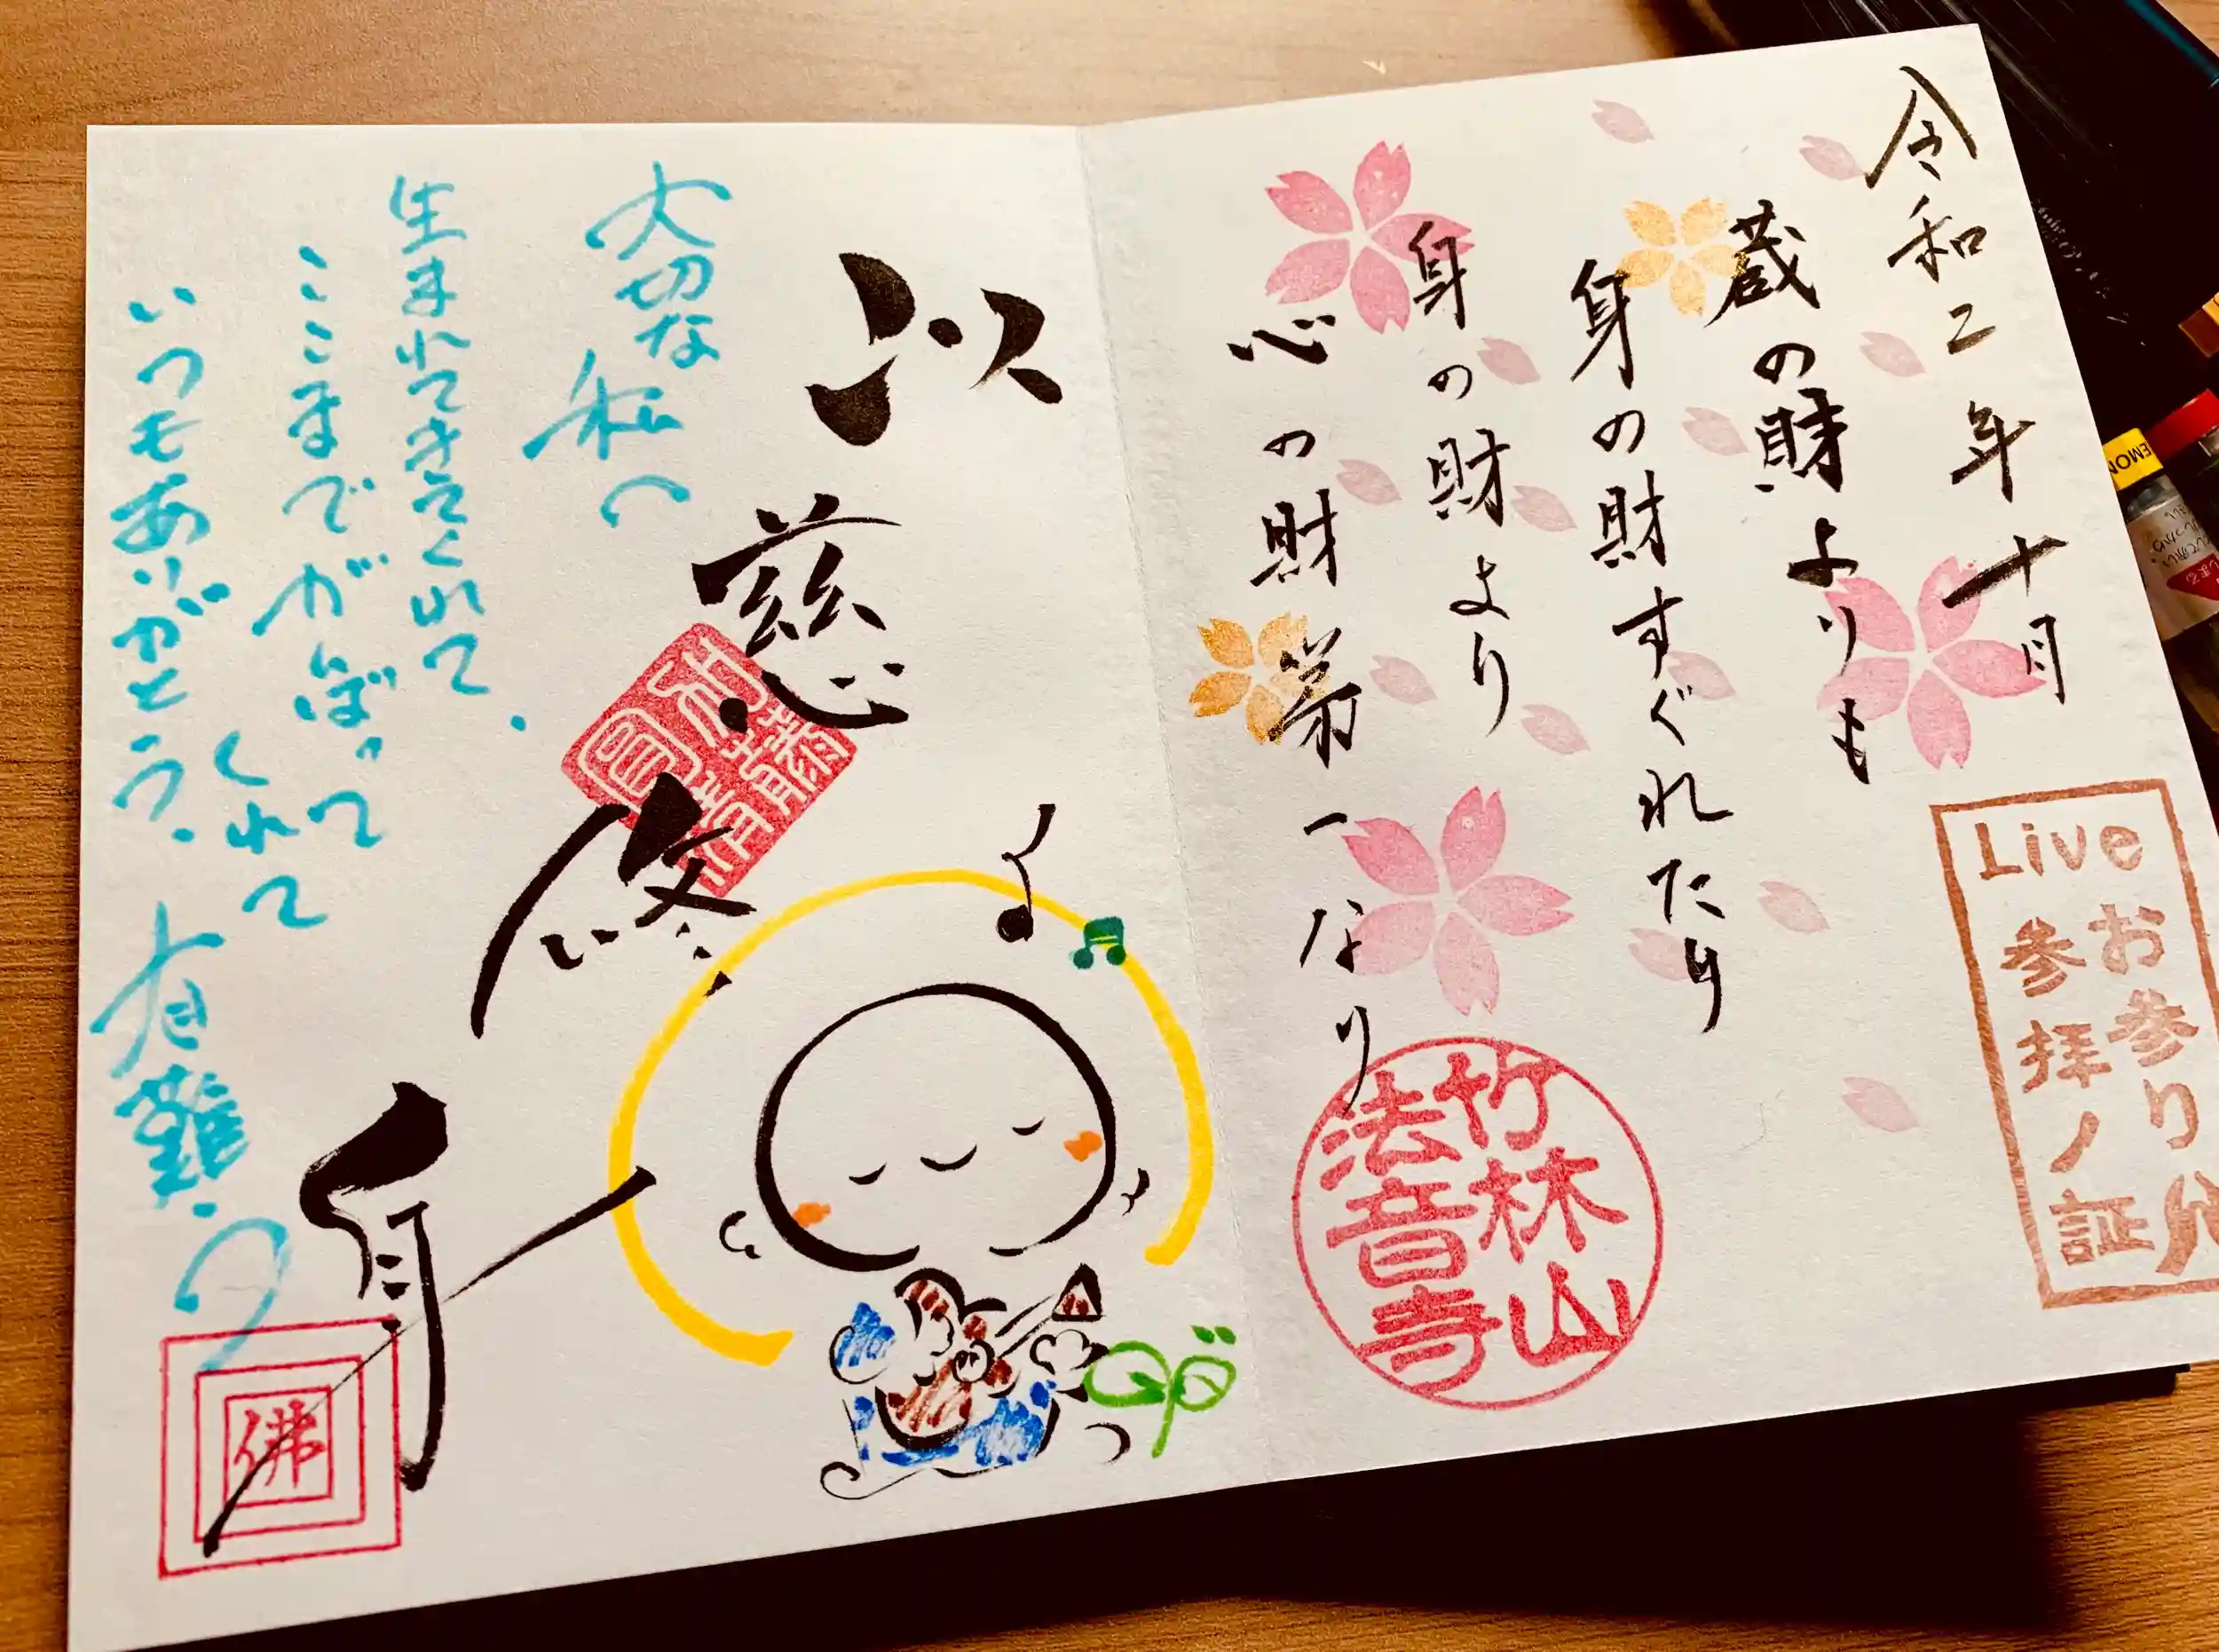 令和二年十月
蔵の財よりも
身の財すぐれたり
身の財より
心の財第一なり
Liveお参り
参拝ノ証
竹林山
法音寺
以慈修身
大切な私へ
生まれてきてくれて、
ここまでがんばって
くれて
いつもありがとう。
有難う
佛